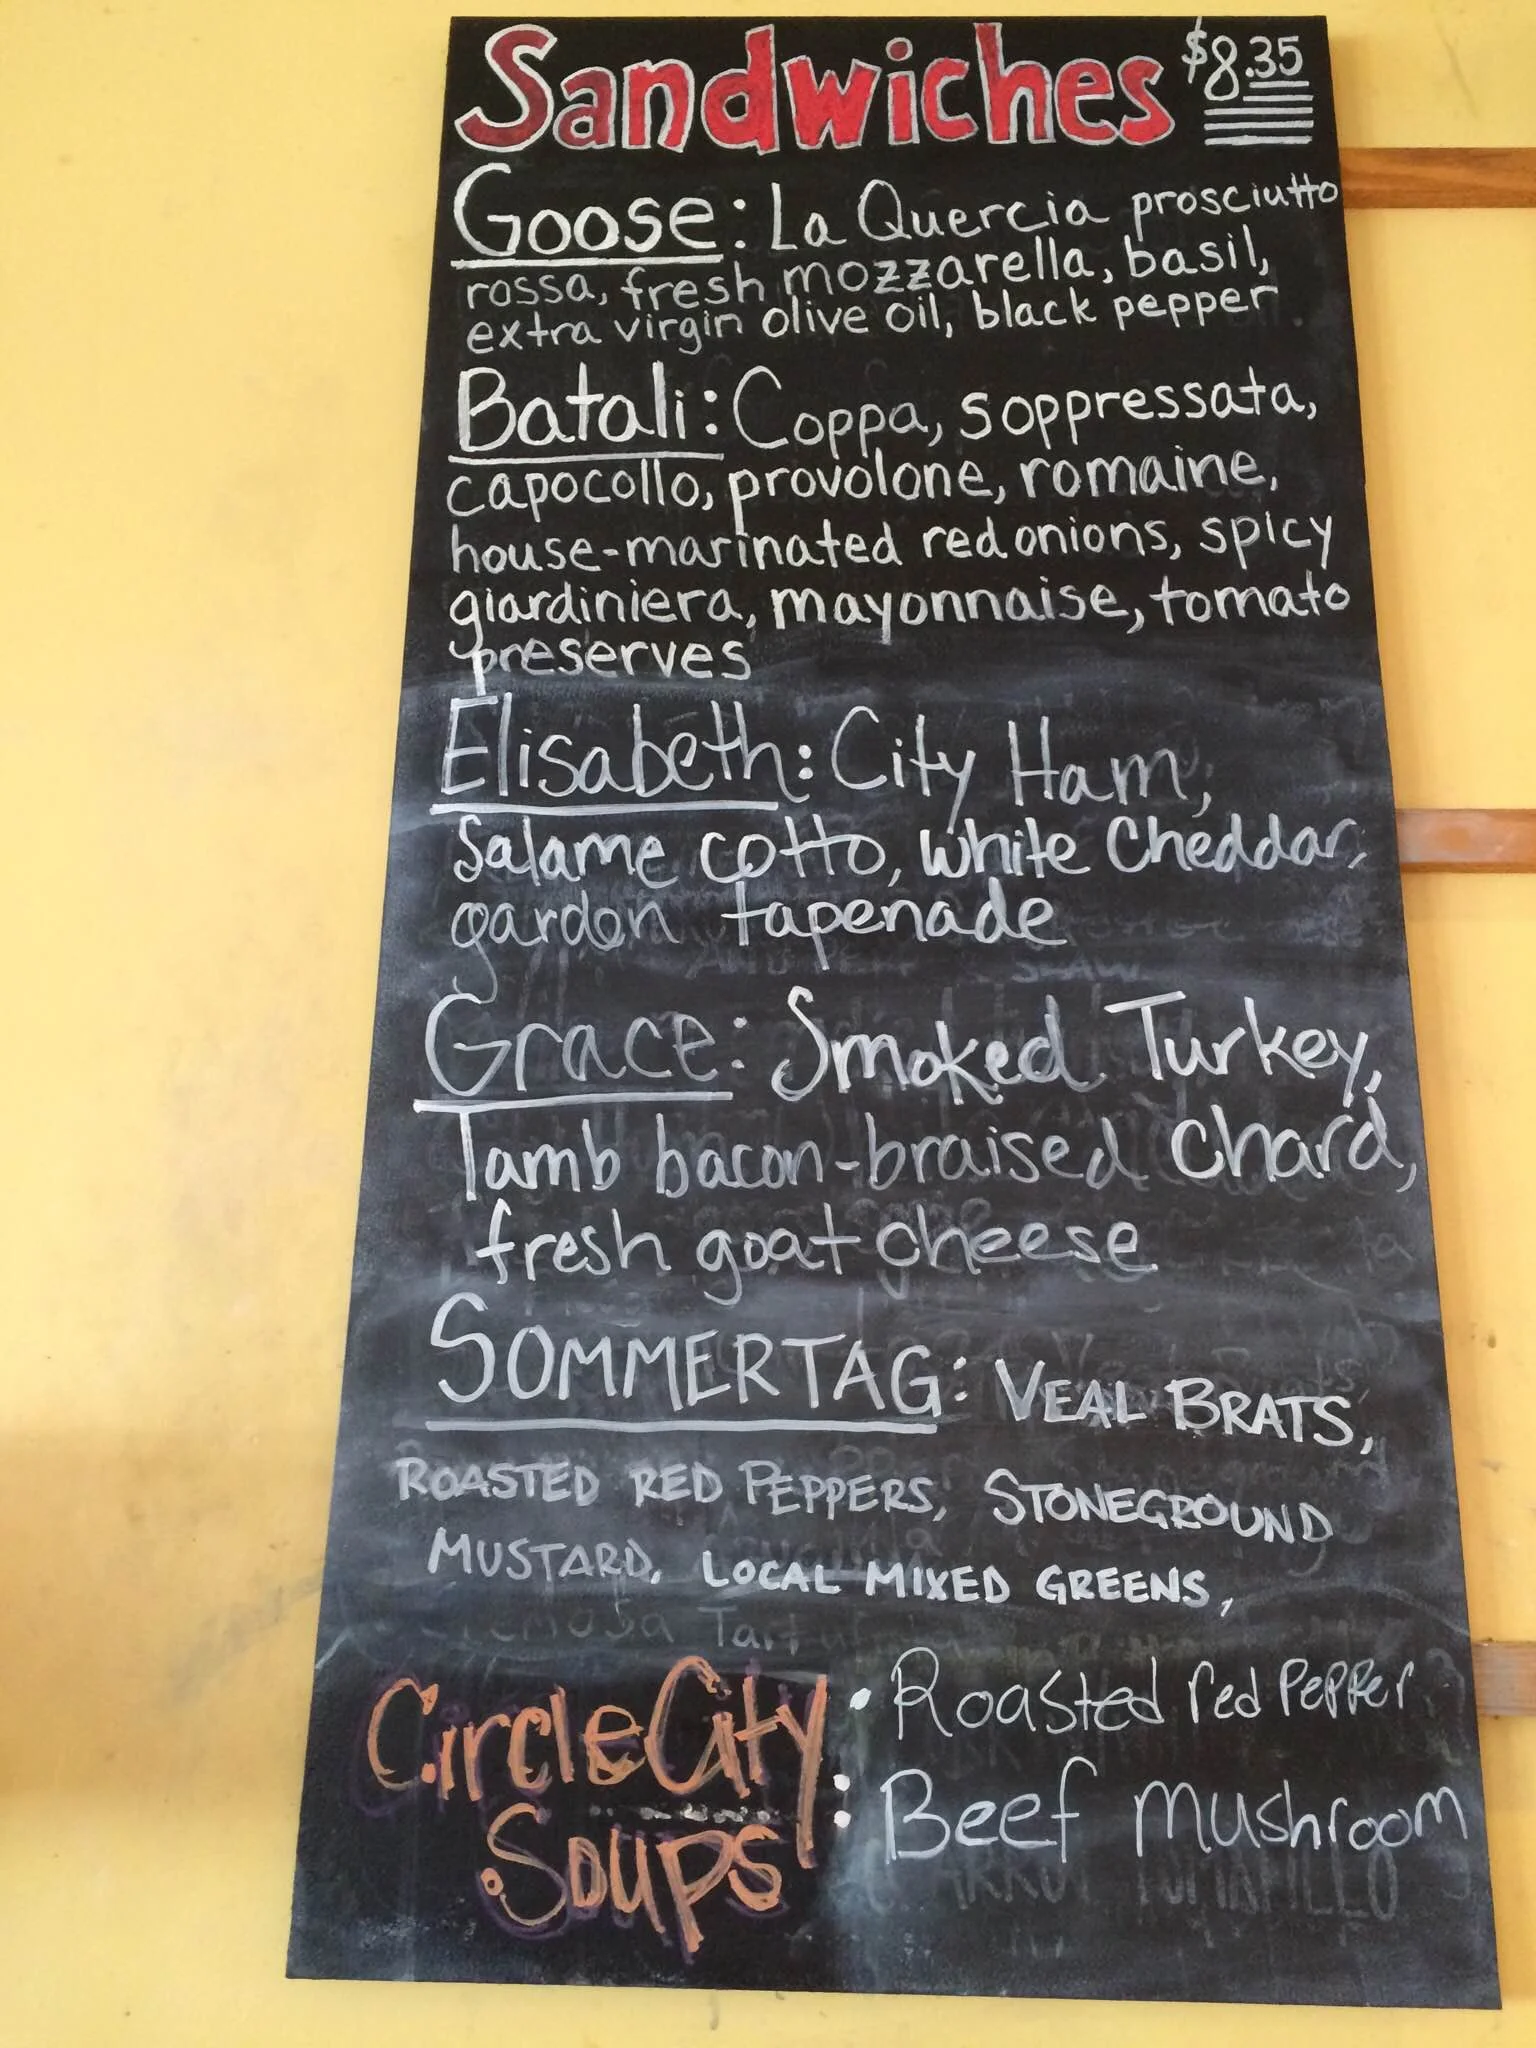 Sandwiches $8.35
Goose: La Quercia prosciutto
rossa, fresh mozzarella, basil,
extra virgin olive oil, black pepper
Batali: Coppa, soppressata,
capocollo, provolone, romaine,
house-marinated red onions, spicy
giardiniera, mayonnaise, tomato
preserves
Elisabeth: City Ham,
Salame cotto, white Cheddar,
garden tapenade
Grace: Smoked Turkey,
Tamb bacon-braised Chard,
fresh goat cheese
SOMMERTAG: VEAL BRATS,
ROASTED RED PEPPERS, STONEGROUND
MUSTARD, LOCAL MIXED GREENS,
Circle City
Soups
• Roasted red Pepper
: Beef Mushroom